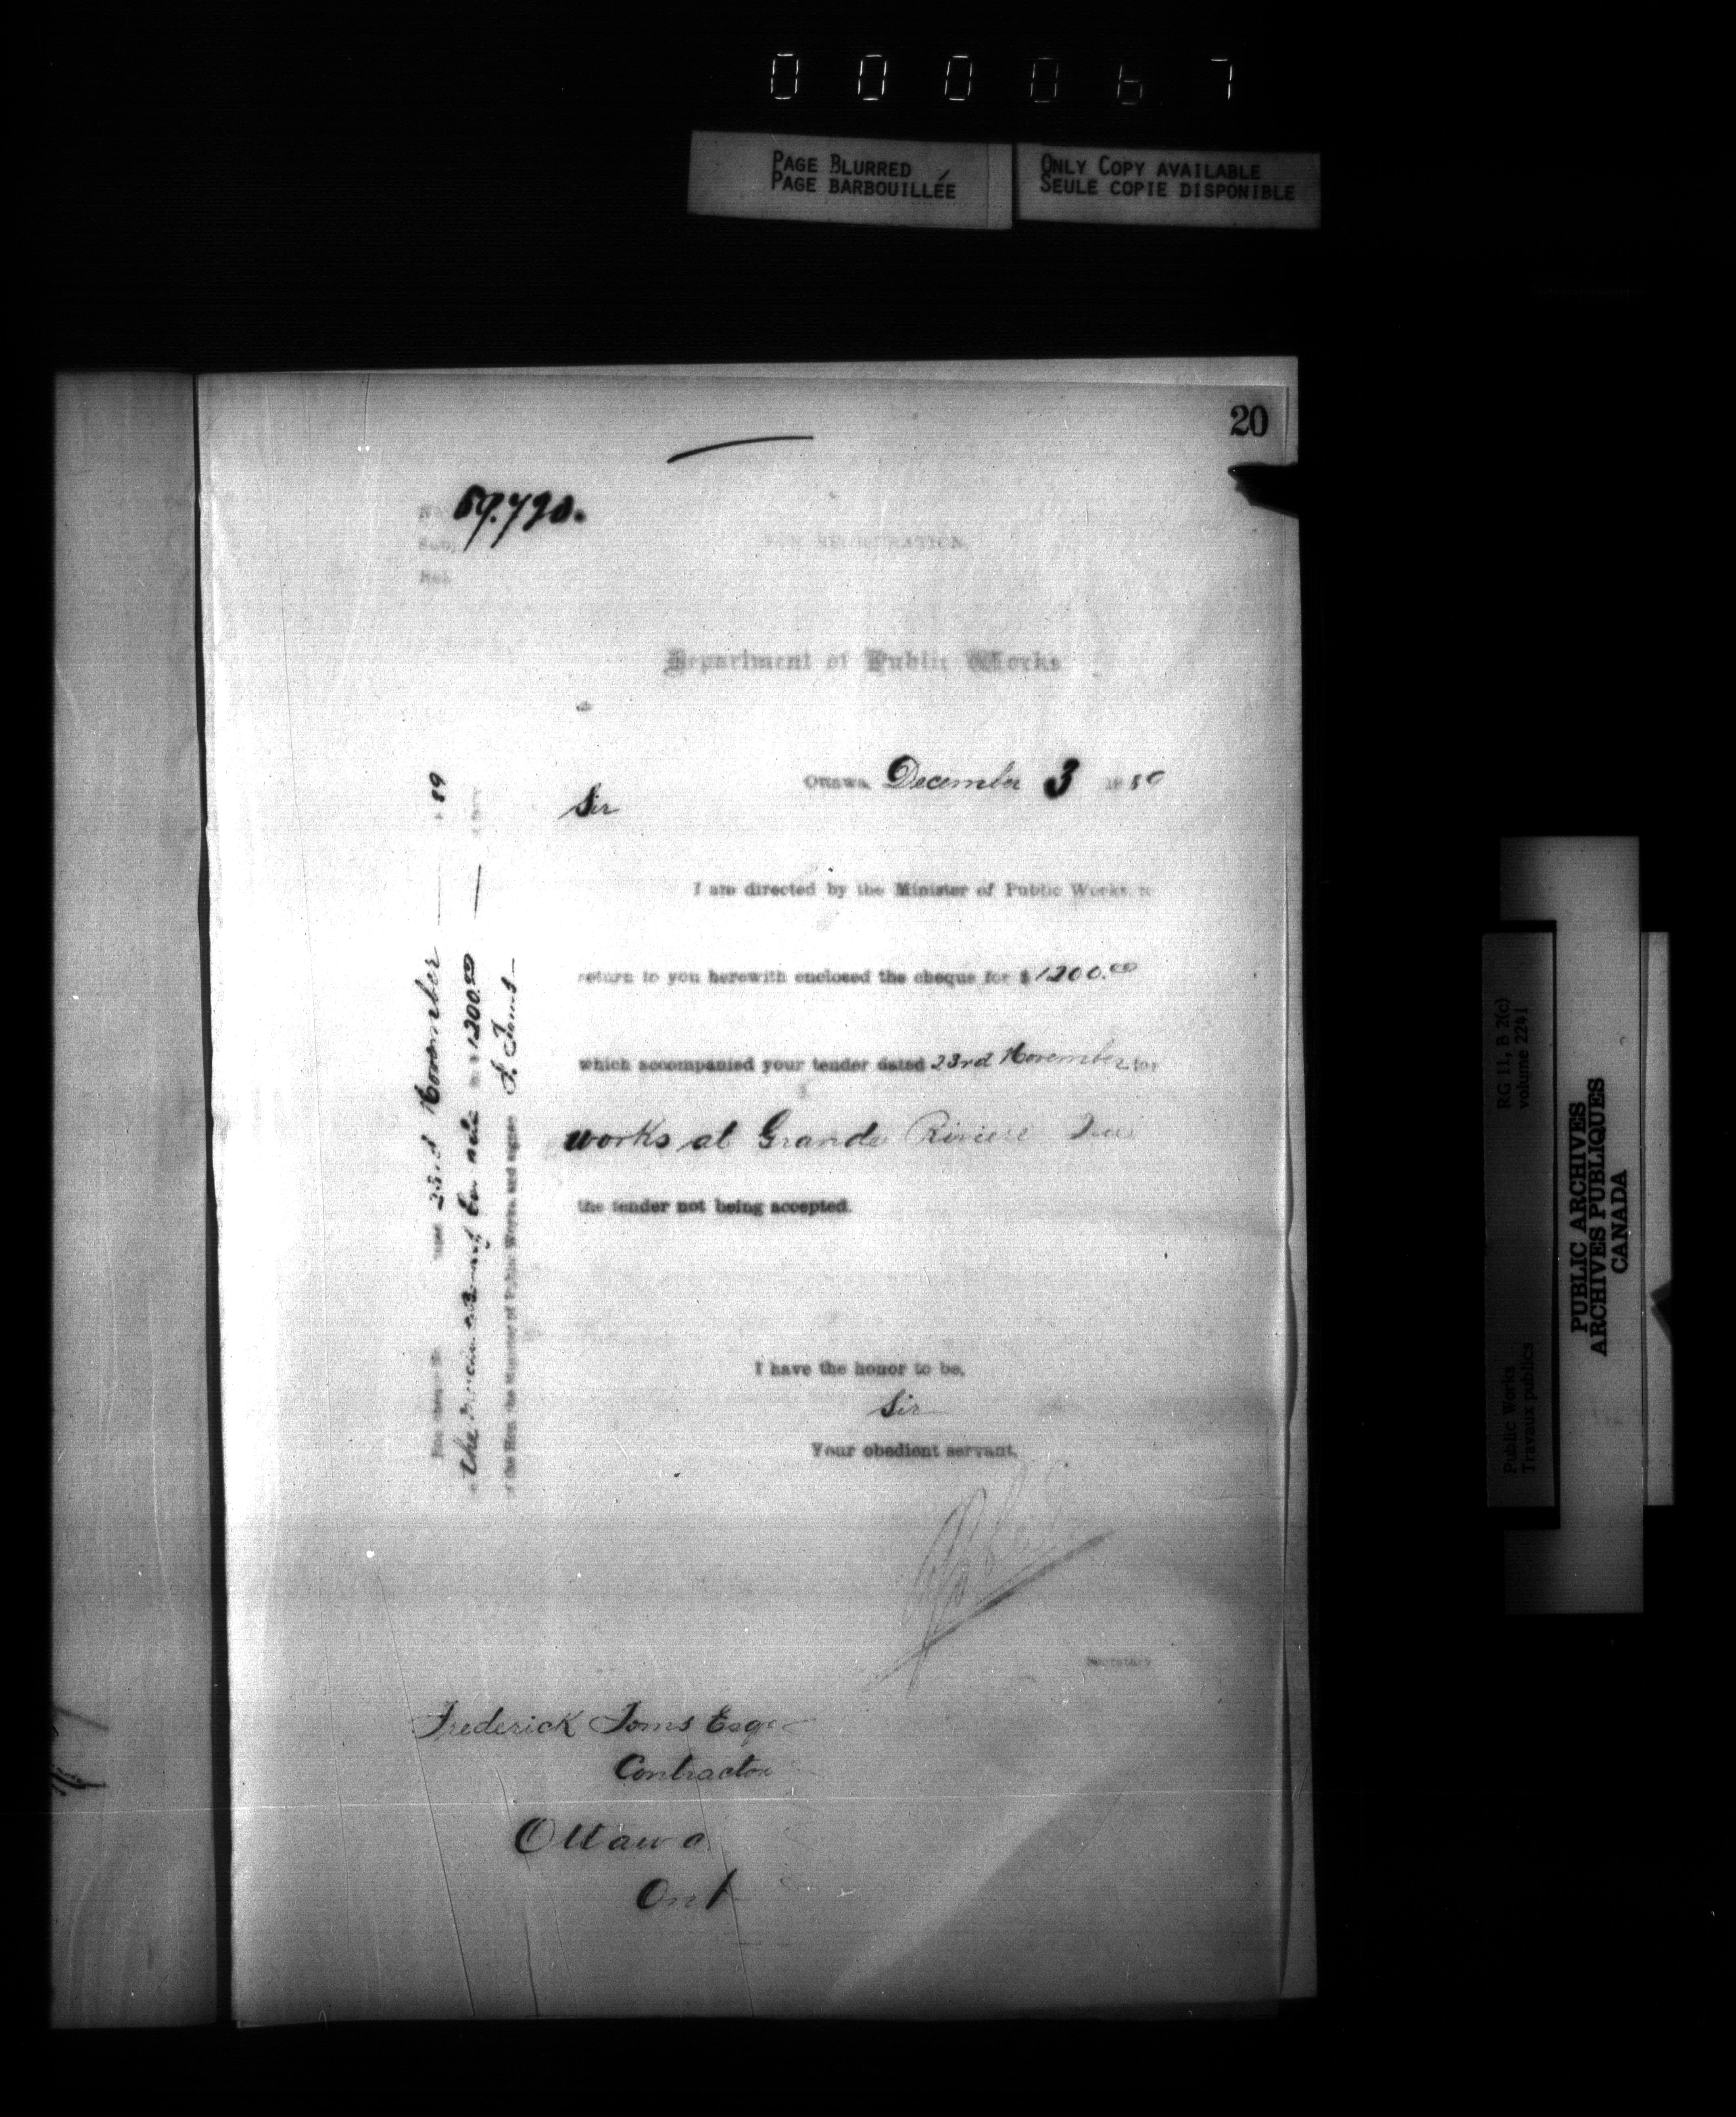 000067
PAGE BLURRED
PAGE BARBOUILLÉE
ONLY COPY AVAILABLE
SEULE COPIE DISPONIBLE
20
No
Subj.
Ref.
Department of Public Works
Ottawa, December 3 18
Sir
I am directed by the Minister of Public Works, to
return to you herewith enclosed the cheque for $ 1200.00
which accompanied your tender dated 23rd November for
works at Grande Riviere
the tender not being accepted.
I have the honor to be,
Sir
Your obedient servant,
Secretary
Frederick Toms Esqr
Contractor
Ottawa
Ont
cheque No. dated 23rd November 89
the 1200.00
of the Hon. the Minister of Public Works and signed F. Toms
RG 11, B 2(c)
volume 2241
Public Works
Travaux publics
PUBLIC ARCHIVES
ARCHIVES PUBLIQUES
CANADA